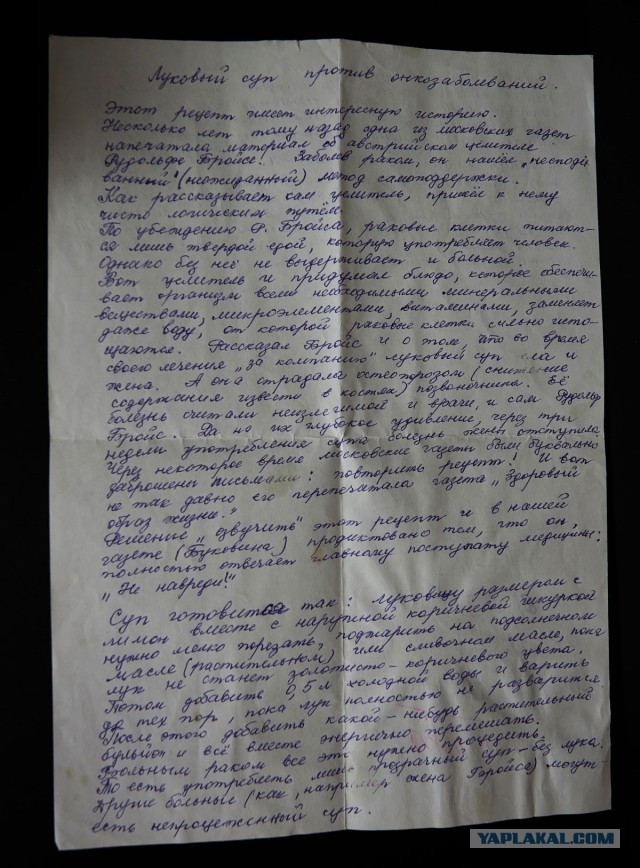 Луковый суп против онкозаболеваний.
Этот рецепт имеет интересную историю.
Несколько лет тому назад одна из московских газет
напечатала материал об австрийском целителе
Рудольфе Бройсе! Заболев раком, он нашёл „несподi
ванный" (неожиданный) метод самоподдержки.
Как рассказывает сам целитель, пришёл к нему
чисто логическим путём.
По убеждению Р. Бройса, раковые клетки питают-
ся лишь твердой едой, которую употребляет человек.
Однако без неё не выдерживает и больной.
Вот целитель и придумал блюдо, которое обеспечи-
вает организм всеми необходимыми минеральными
веществами, микроэлементами, витаминами, заменяет
даже воду, от которой раковые клетки сильно исто-
щаются. Рассказал Бройс и о том, что во время
своего лечения „за компанию" луковый суп ела и
жена. А она страдала остеопорозом (снижение
содержания извести в костях) позвоночника. Её
болезнь считали неизлечимой и врачи, и сам Рудольф
Бройс. Да на их глубокое удивление, через три
недели употребления супа болезнь жены отступила.
Через некоторое время московские газеты были буквально
заброшены письмами: повторить рецепт! И вот
не так давно его перепечатала газета „Здоровый
образ жизни."
Решение „озвучить" этот рецепт и в нашей
газете (Буковина) продиктовано тем, что он,
полностью отвечает главному постулату медицины:
„Не навреди!"
Суп готовится так: луковицу размером с
лимон вместе с наружной коричневой шкуркой
нужно мелко порезать, поджарить на подсолнечном
масле (растительном) или сливочном масле, пока
лук не станет золотисто-коричневого цвета.
Потом добавить 0,5 л холодной воды и варить
до тех пор, пока лук полностью не разварится.
После этого добавить какой-нибудь растительный
бульйон и всё вместе энергично перемешать.
Больным раком все это нужно процедить.
То есть употреблять лишь прозрачный суп - без лука.
Другие больные (как, например жена Бройса) могут -
есть непроцеженный суп.
YAPLAKAL.COM